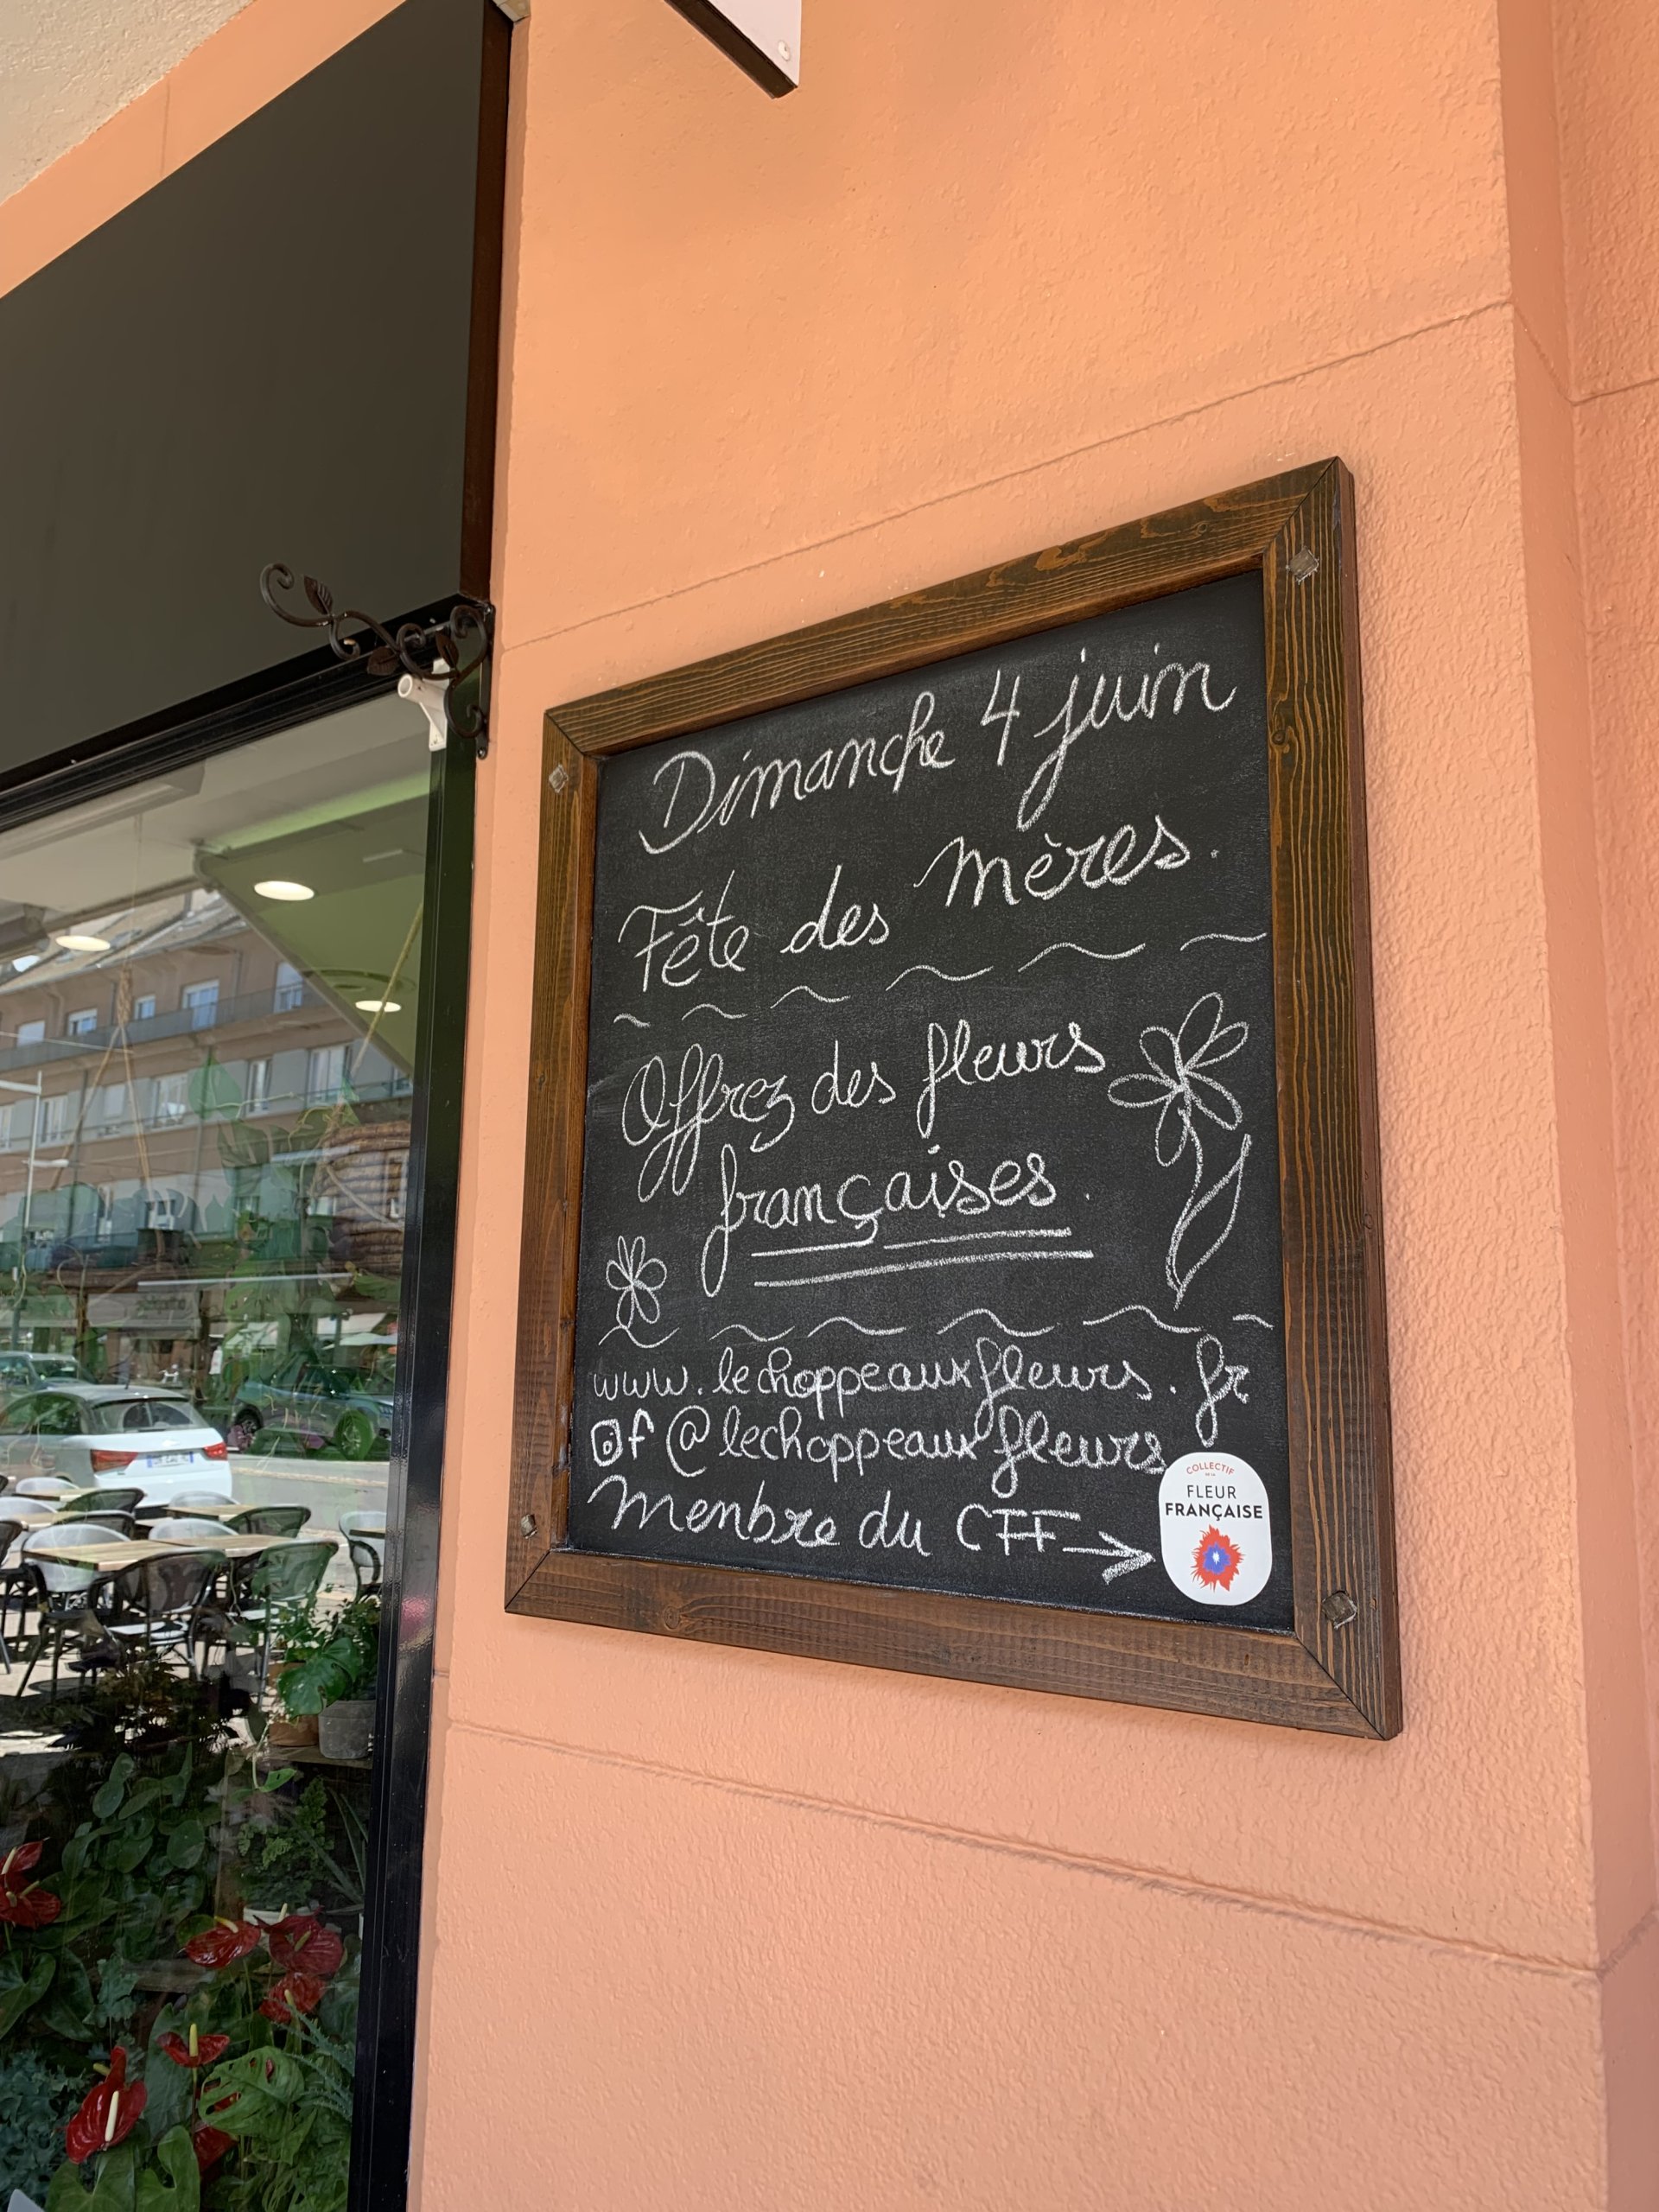 Dimanche 4 juin
Fête des mères.
Offrez des fleurs
françaises.
www.lechoppeauxfleurs.fr
f @lechoppeauxfleurs
Menbre du CFF →
COLLECTIF
DE LA
FLEUR
FRANÇAISE